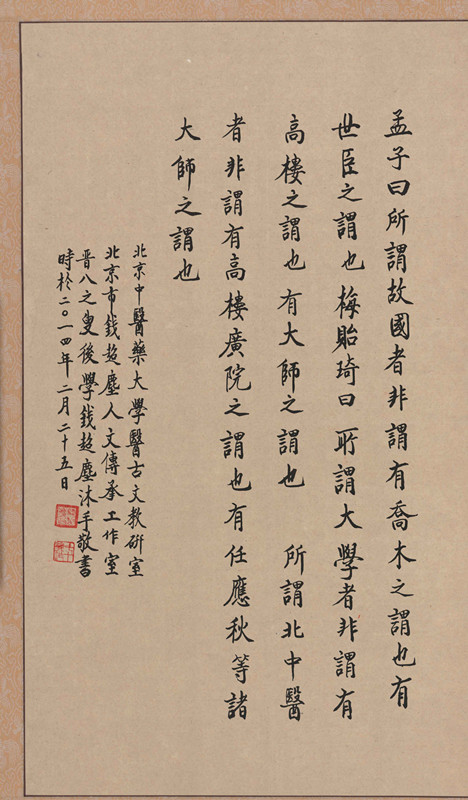 孟子曰所謂故國者非謂有喬木之謂也有
世臣之謂也梅貽琦曰所謂大學者非謂有
高樓之謂也有大師之謂也 所謂北中醫
者非謂有高樓廣院之謂也有任應秋等諸
大師之謂也
北京中醫藥大學醫古文教研室
北京市錢超塵人文傳承工作室
晋八之叟後學錢超塵沐手敬書
時於二〇一四年二月二十五日